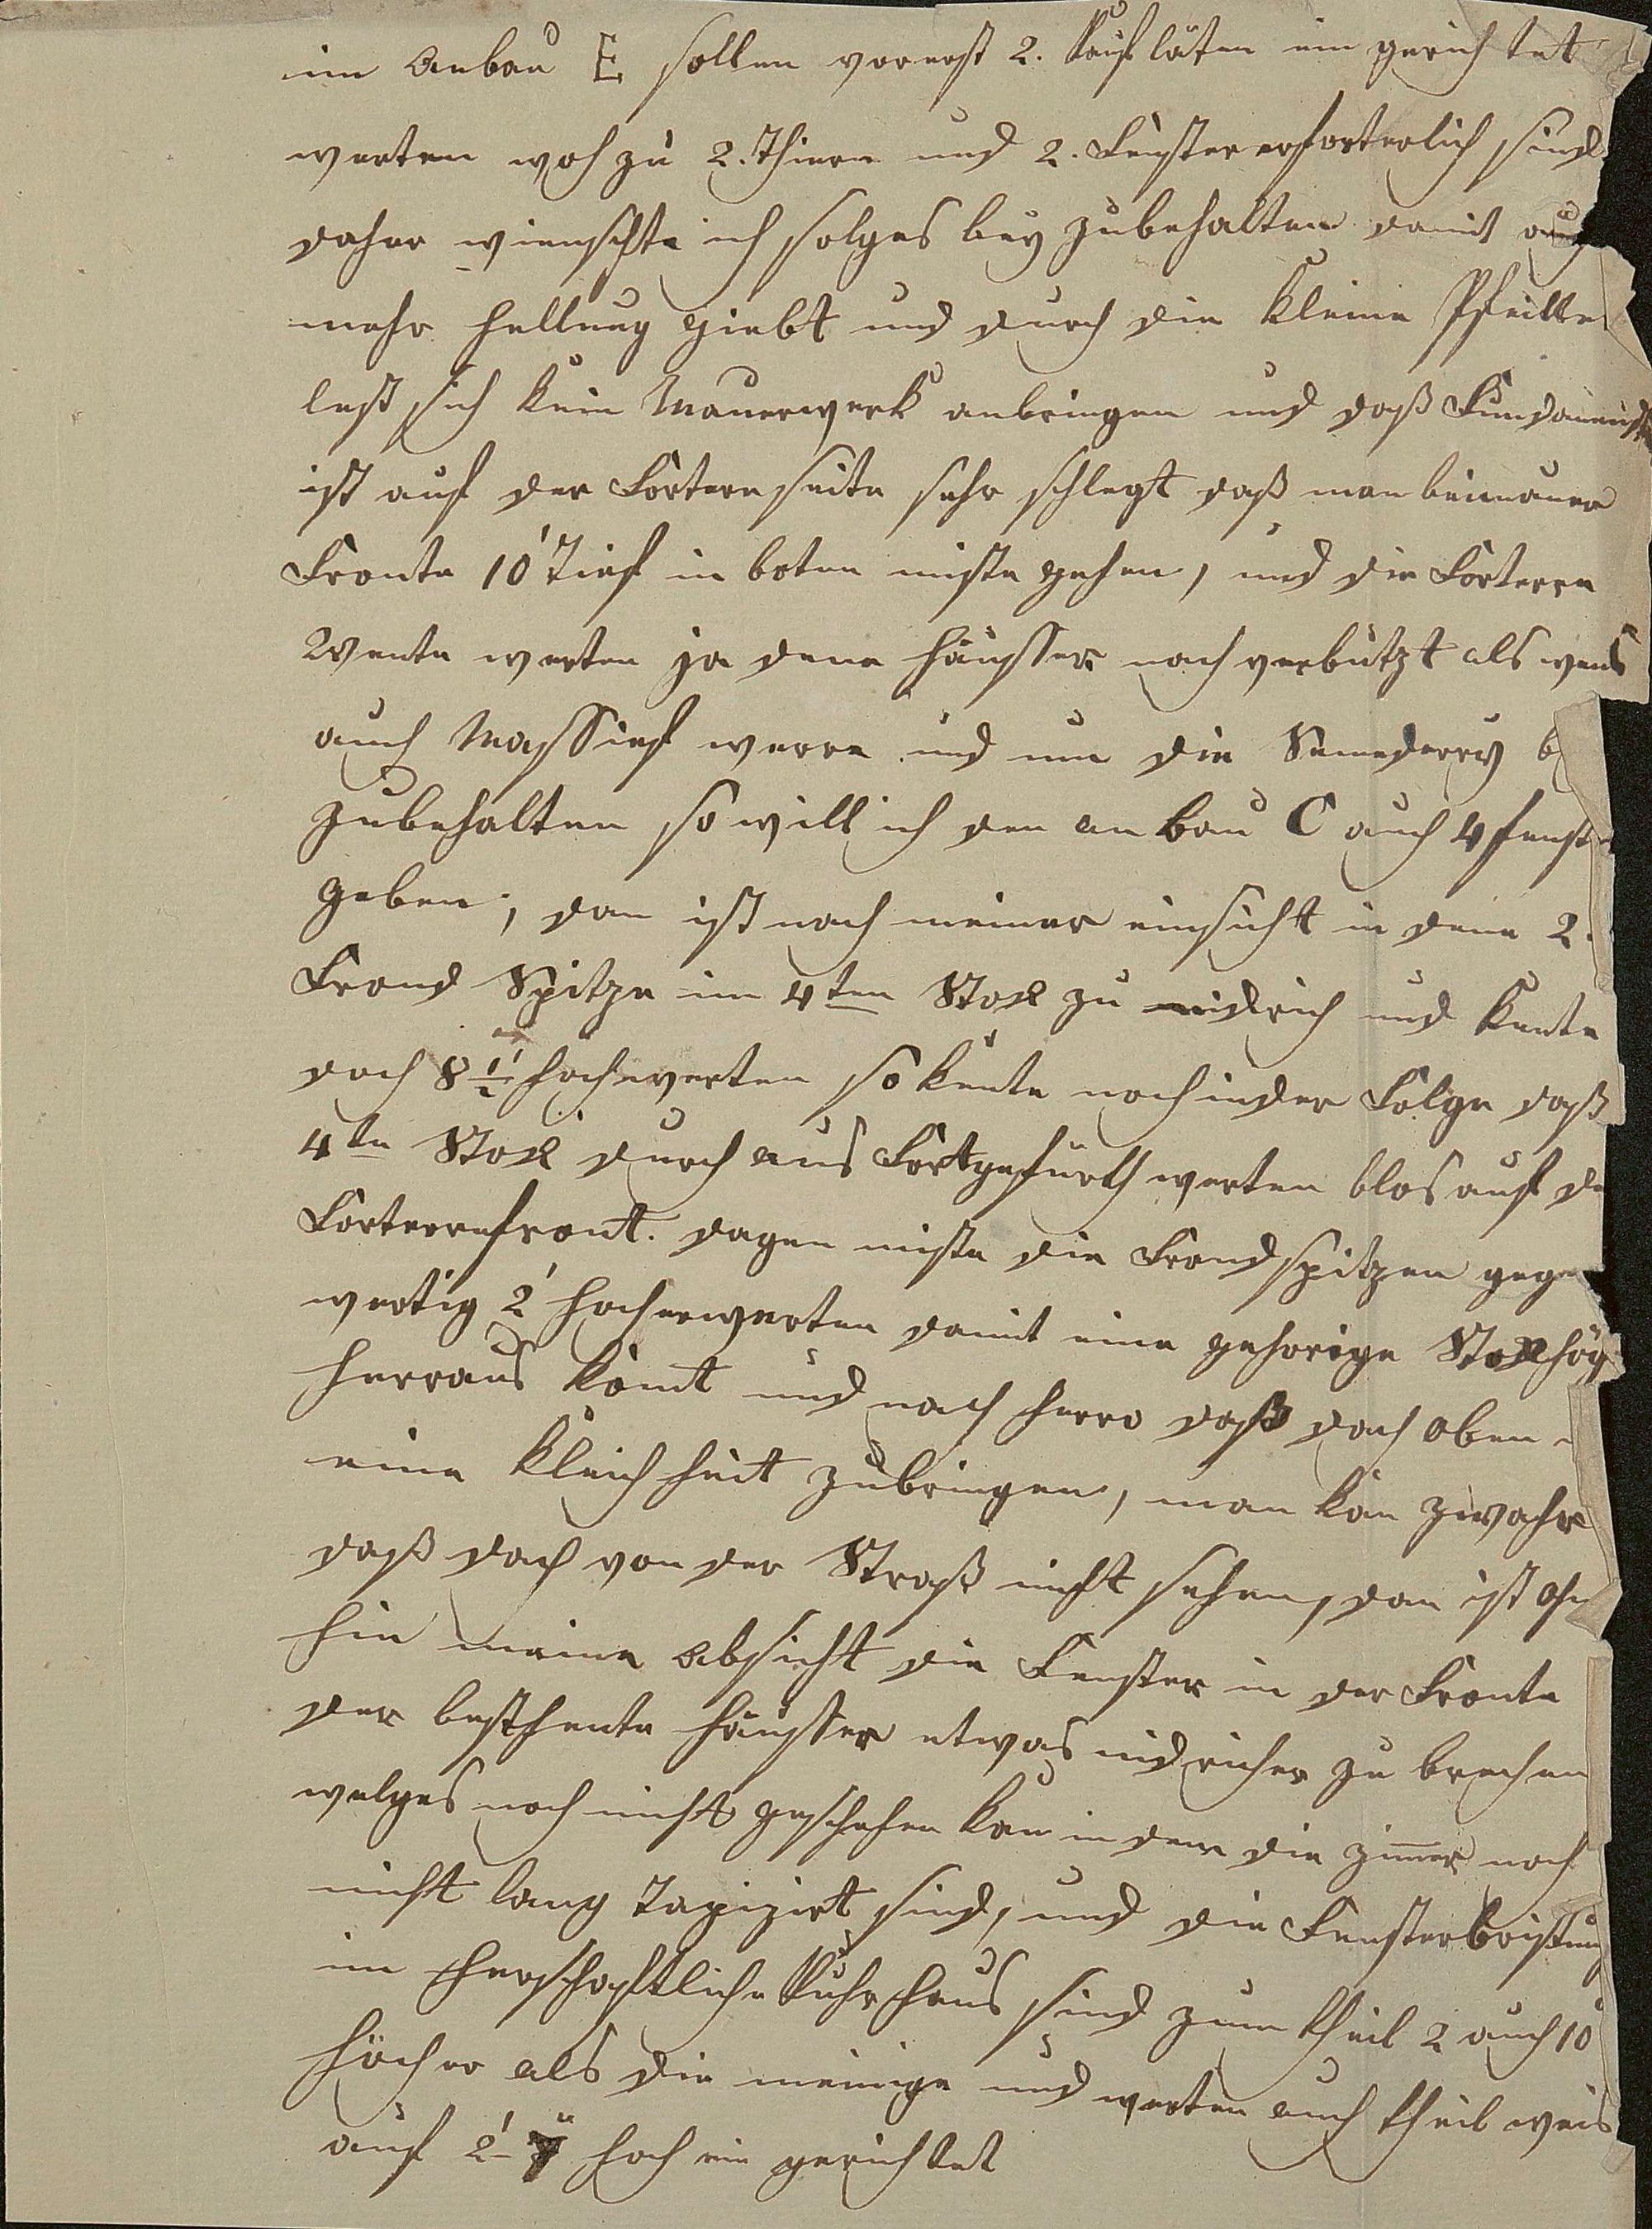 im Anbau E sollen vorerst 2. Kaufläten ein gerichtet
werten woh zu 2. Thiere und 2. Fenster erforterlich sind
daher wienschte ich solges bey zubehalten damit auch
mehr hellung giebt und durch die kleine Pfeiller
lest sich kein Mauerwerk anbringen und daß Fundament
ist auf der Förtere seite sehr schlegt daß man bei
Fronte 10' Tief in boten miste gehen, und die Förterre
Wente werten ja dene häusser nach verbutzt als wens
auch Massief werre und um die Simederry b
zubehalten so will ich den an bau C auch 4 fenst
geben, dan ist nach meiner einsicht in dene 2.
Frond Spitze im 4ten Stock zu nidrich und kente
doch 8 1/2' hoch werten so kente noch in der Folge daß
4te Stock durch aus Fortgefürth werten blos auf de
Förterrefront. dagen miste die Frondspitzen gege
wertig 2' hocher werten damit eine gehorige Stockhög
herraus kömt und nach herro daß dach oben
eine kleich heit zubringen, man kan zwahr
daß dach von der Straß nicht sehen, dan ist ohn
hin meine absicht die Fenster in der Fronte
der besthente häusser etwas nidricher zu brechen
welges noch nicht geschehen kan in dem die zimer noch
nicht lang Tapizirt sind, und die Fensterbristung
im herschaftliche Kuhr haus sind zum theil 2 auch 10"
höcher als die meinige und werten auch theil weis
auf 2'-7" hoch ein gerichtet